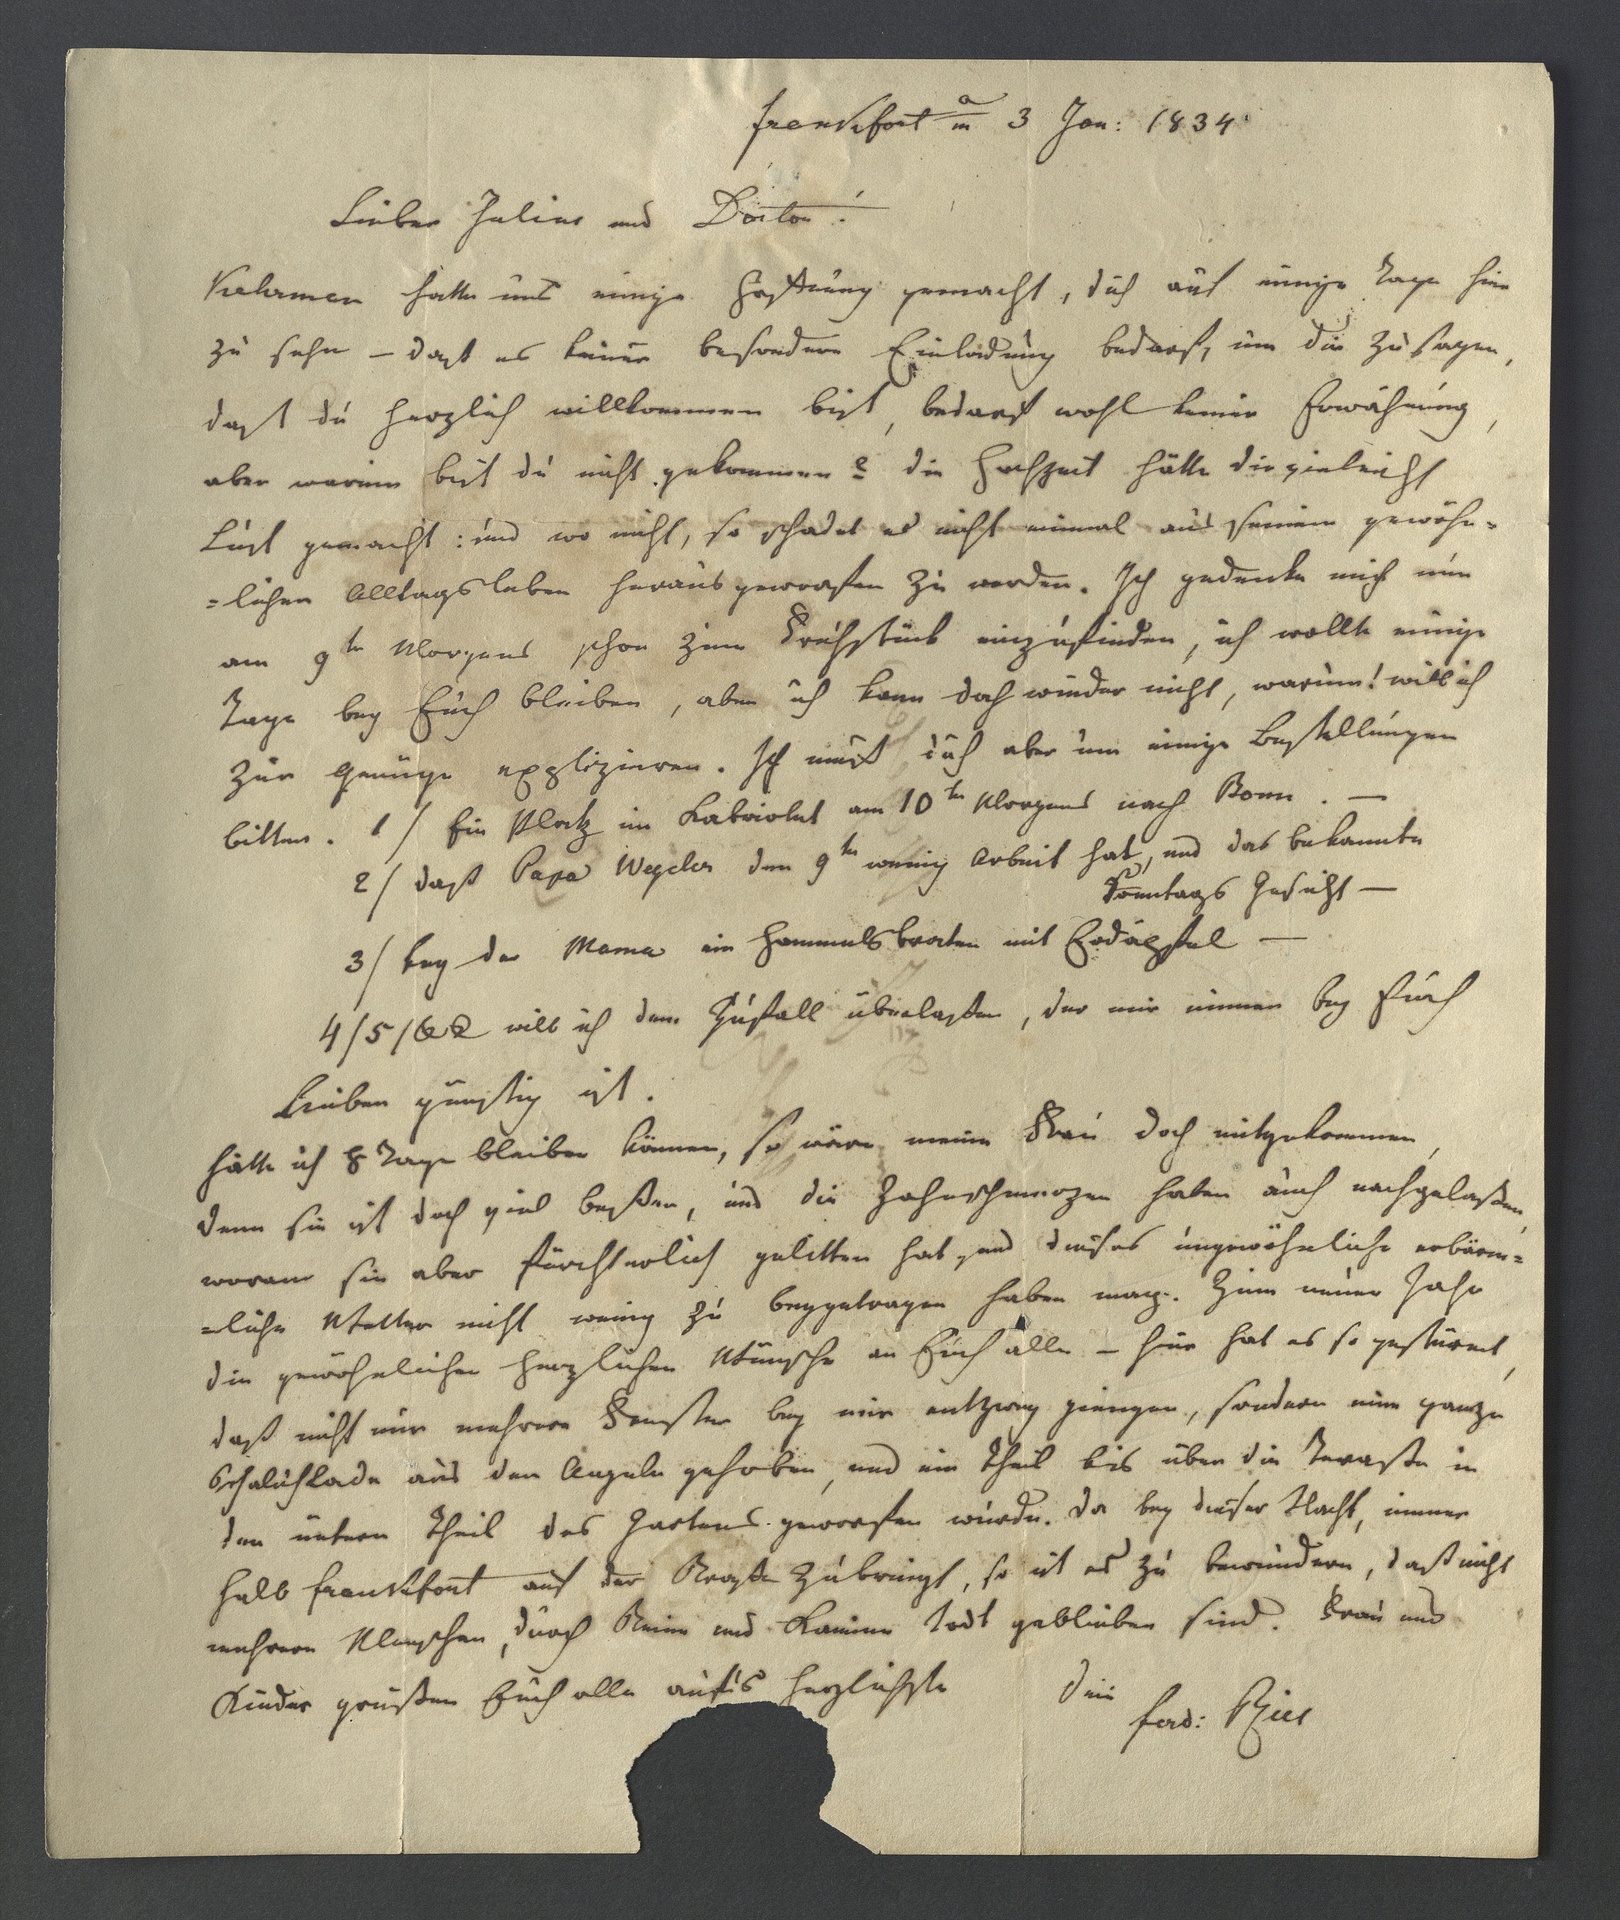 Frankfort a/m 3 Jan: 1834
Lieber Julius und Docktor!
hatte uns einige Hoffnung gemacht, dich auf einige Tage hier
zu sehn – daß es keiner besondern Einladung bedarf, um dir zu sagen,
daß du herzlich willkommen bist, bedarf wohl keiner Erwähnung,
aber warum bist du nicht gekommen? die Hochzeit hätte dir vieleicht
Lust gemacht: und wo nicht, so schadet es nicht einmal aus seinem gewöhn=
=lichen Alltagsleben herausgeworfen zu werden. Ich gedenke mich nun
am 9ten Morgens schon zum Frühstück einzufinden, ich wollte einige
Tage bey Euch bleiben, aber ich kann doch wieder nicht, warum! will ich
zur Genüge explizieren. Ich muß dich aber um einige Bestellungen
bitten. 1/ Ein Platz im Kabriolet am 10ten Morgens nach Bonn. —
2/ daß Papa Wegeler den 9ten wenig Arbeit hat, und das bekannte
Sonntags Gesicht —
3/ bey der Mama ein Hammelsbraten mit Erdäpfel —
4/5/&& will ich dem Zufall überlaßen, der mir immer bey Euch
Lieben günstig ist.
Hätte ich 8 Tage bleiben können, so wäre meine Frau doch mitgekommen,
denn sie ist doch viel beßer, und die Zahnschmerzen haben auch nachgelaßen,
woran sie aber fürchterlich gelitten hat, und dieses ungewöhnliche erbärm=
=liche Wetter nicht wenig zu beygetragen haben mag. Zum neuen Jahr
die gewöhnlichen herzlichen Wünsche an Euch alle – hier hat es so gestürmt,
daß nicht nur mehrere Fenster bey mir entzwey giengen, sondern eine ganze
aus den Angeln gehoben, und ein Theil bis über die Teraße in
den untern Theil des Gartens geworfen wurde. Da bey dieser Nacht, immer
halb Frankfort auf der Straße zubringt, so ist es zu bewundern, daß nicht
mehrere Menschen, durch Steine und Kamine todt geblieben sind. Frau und
Kinder grüßen Euch alle aufs herzlichste dein
Ferd: Ries